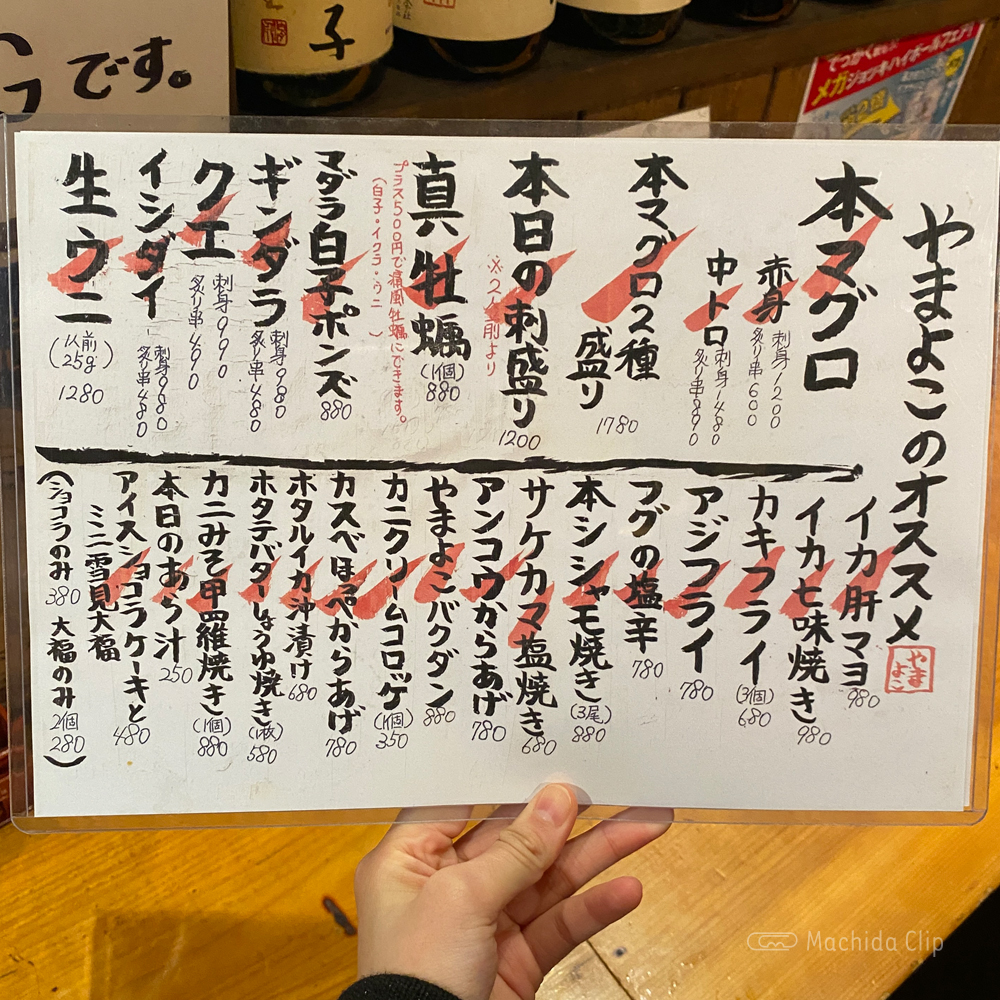 やまよこのオススメ
やまよこ
本マグロ
赤身 刺身1200
炙り串600
中トロ 刺身1480
炙り串890
本マグロ2種
盛り
1780
本日の刺盛り
1200
※2人前より
真牡蠣
(1個)
880
プラス500円で痛風牡蠣にできます。
(白子・イクラ・ウニ)
マダラ白子ポンズ
880
ギンダラ
刺身980
炙り串480
クエ
刺身990
炙り串490
イシダイ
刺身980
炙り串480
生ウニ
(1人前
25g)
1280
イカ肝マヨ
980
イカ七味焼き
980
カキフライ
(3個)
680
アジフライ
780
フグの塩辛
780
本シシャモ焼き
(3尾)
880
サケカマ塩焼き
680
アンコウからあげ
780
やまよこバクダン
880
カニクリームコロッケ
(1個)
350
カスベほっぺからあげ
780
ホタルイカ沖漬け
680
ホタテバターしょうゆ焼き
(1枚)
580
カニみそ甲羅焼き
(1個)
880
本日のあら汁
250
アイスショコラケーキと
ミニ雪見大福
480
(ショコラのみ 380 大福のみ 2個 280)
です。
子
メガジョッキハイボールフェア!
Machida Clip